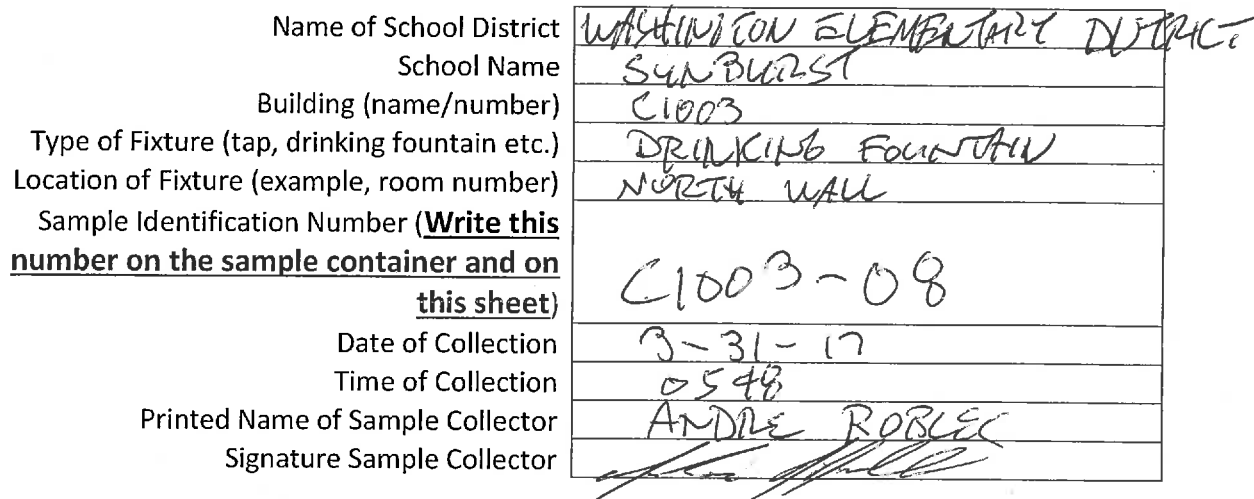 Name of School District WASHINGTON ELEMENTARY DISTRICT
School Name SUNBURST
Building (name/number) C1003
Type of Fixture (tap, drinking fountain etc.) DRINKING FOUNTAIN
Location of Fixture (example, room number) NORTH WALL
Sample Identification Number (Write this
number on the sample container and on
this sheet) C1003-08
Date of Collection 3-31-17
Time of Collection 0548
Printed Name of Sample Collector ANDRE ROBLES
Signature Sample Collector